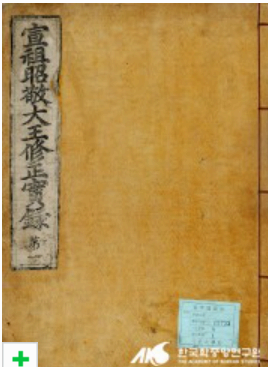 宣祖昭敬大王修正實錄
한국학중앙연구원
THE ACADEMY OF KOREAN STUDIES